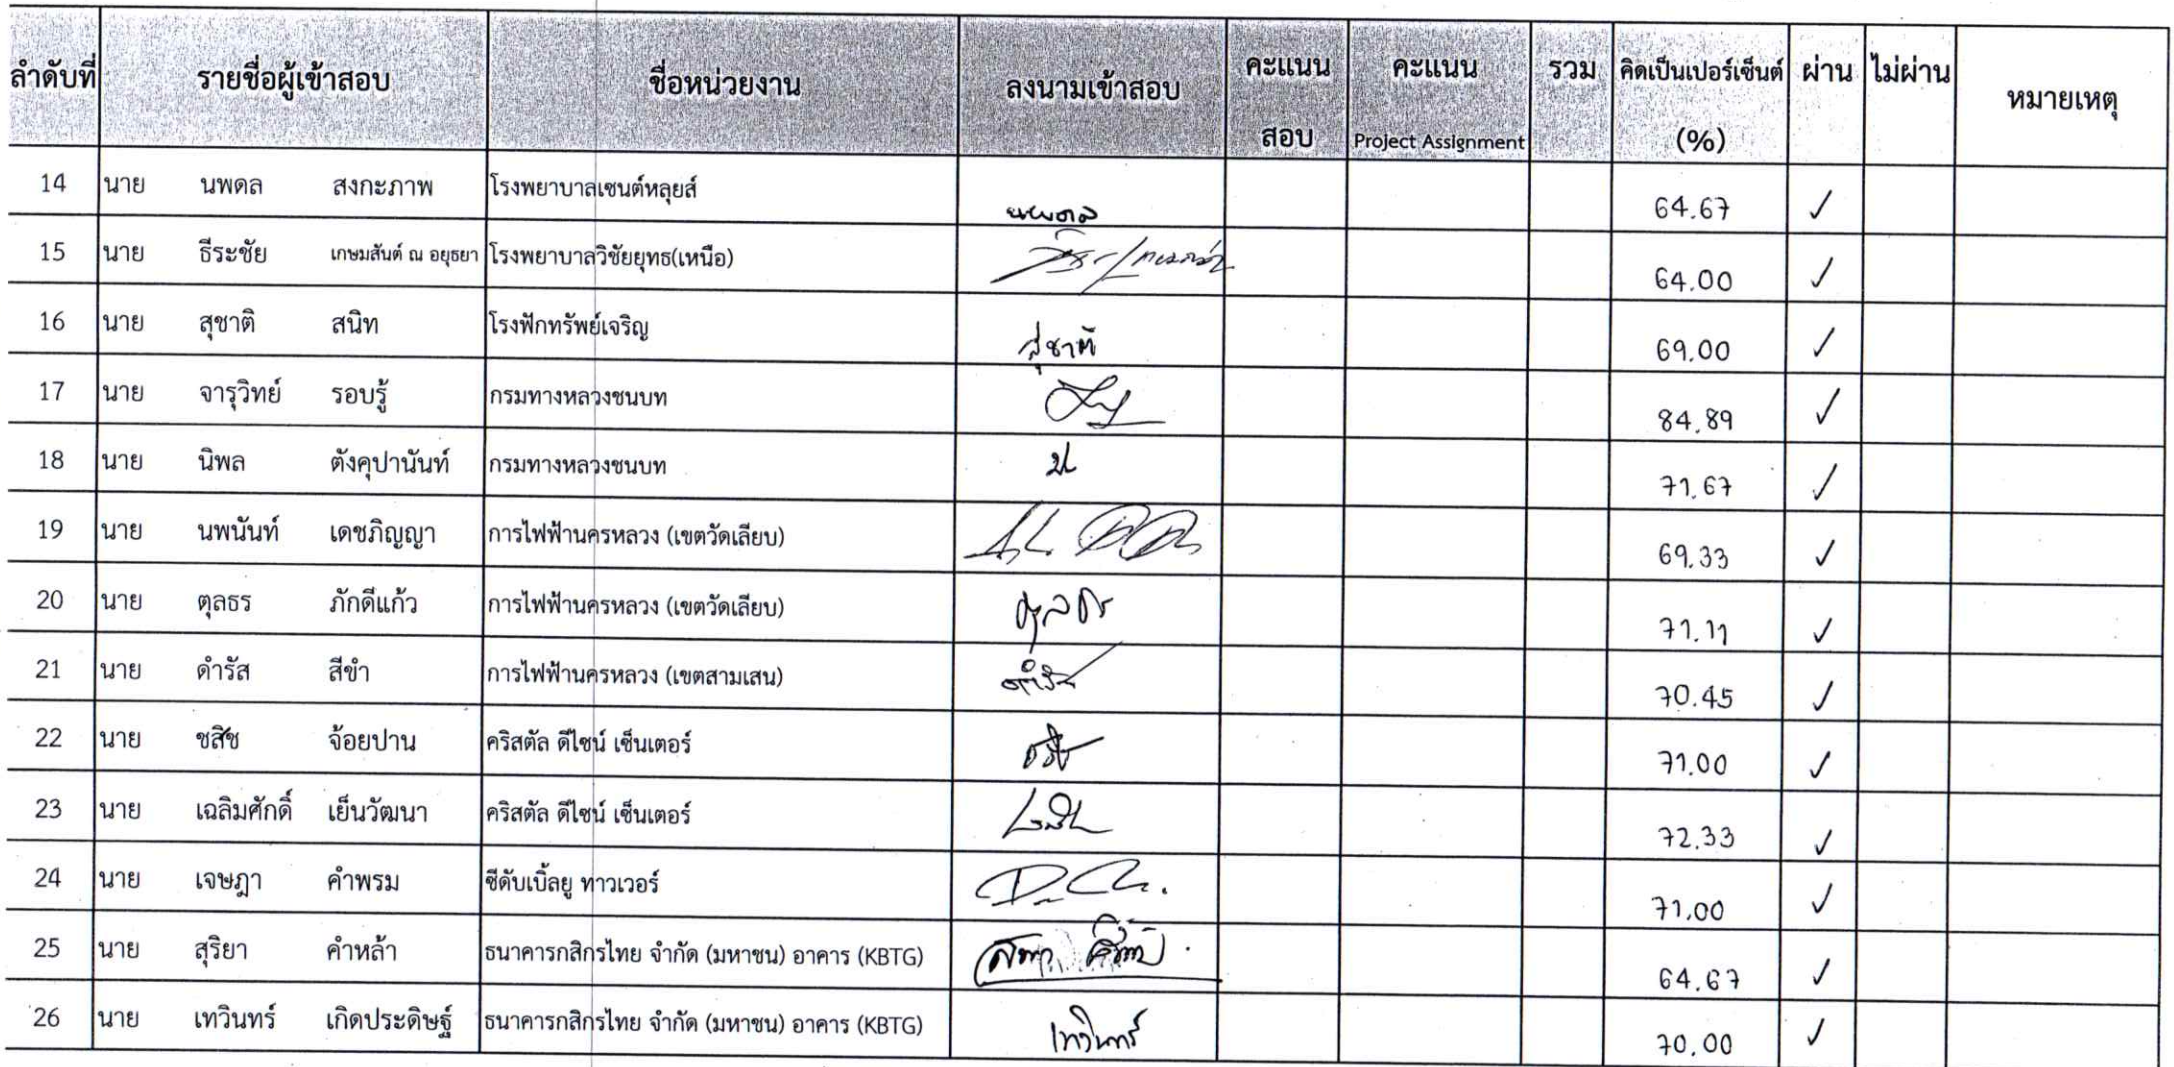 ลำดับที่ รายชื่อผู้เข้าสอบ ชื่อหน่วยงาน ลงนามเข้าสอบ คะแนนสอบ คะแนน Project Assignment รวม คิดเป็นเปอร์เซ็นต์ (%) ผ่าน ไม่ผ่าน หมายเหตุ
14 นาย นพดล สงกะภาพ โรงพยาบาลเซนต์หลุยส์ นพดล 64.67 ✓
15 นาย ธีระชัย เกษมสันต์ ณ อยุธยา โรงพยาบาลวิชัยยุทธ(เหนือ) 64.00 ✓
16 นาย สุชาติ สนิท โรงฟักทรัพย์เจริญ สุชาติ 69.00 ✓
17 นาย จารุวิทย์ รอบรู้ กรมทางหลวงชนบท 84.89 ✓
18 นาย นิพล ตังคุปานันท์ กรมทางหลวงชนบท 71.67 ✓
19 นาย นพนันท์ เดชภิญญา การไฟฟ้านครหลวง (เขตวัดเลียบ) 69.33 ✓
20 นาย ตุลธร ภักดีแก้ว การไฟฟ้านครหลวง (เขตวัดเลียบ) ตุลธร 71.11 ✓
21 นาย ดำรัส สีขำ การไฟฟ้านครหลวง (เขตสามเสน) ดำรัส 70.45 ✓
22 นาย ชสิช จ้อยปาน คริสตัล ดีไซน์ เซ็นเตอร์ 71.00 ✓
23 นาย เฉลิมศักดิ์ เย็นวัฒนา คริสตัล ดีไซน์ เซ็นเตอร์ 72.33 ✓
24 นาย เจษฎา คำพรม ซีดับเบิ้ลยู ทาวเวอร์ 71.00 ✓
25 นาย สุริยา คำหล้า ธนาคารกสิกรไทย จำกัด (มหาชน) อาคาร (KBTG) 64.67 ✓
26 นาย เทวินทร์ เกิดประดิษฐ์ ธนาคารกสิกรไทย จำกัด (มหาชน) อาคาร (KBTG) เทวินทร์ 70.00 ✓